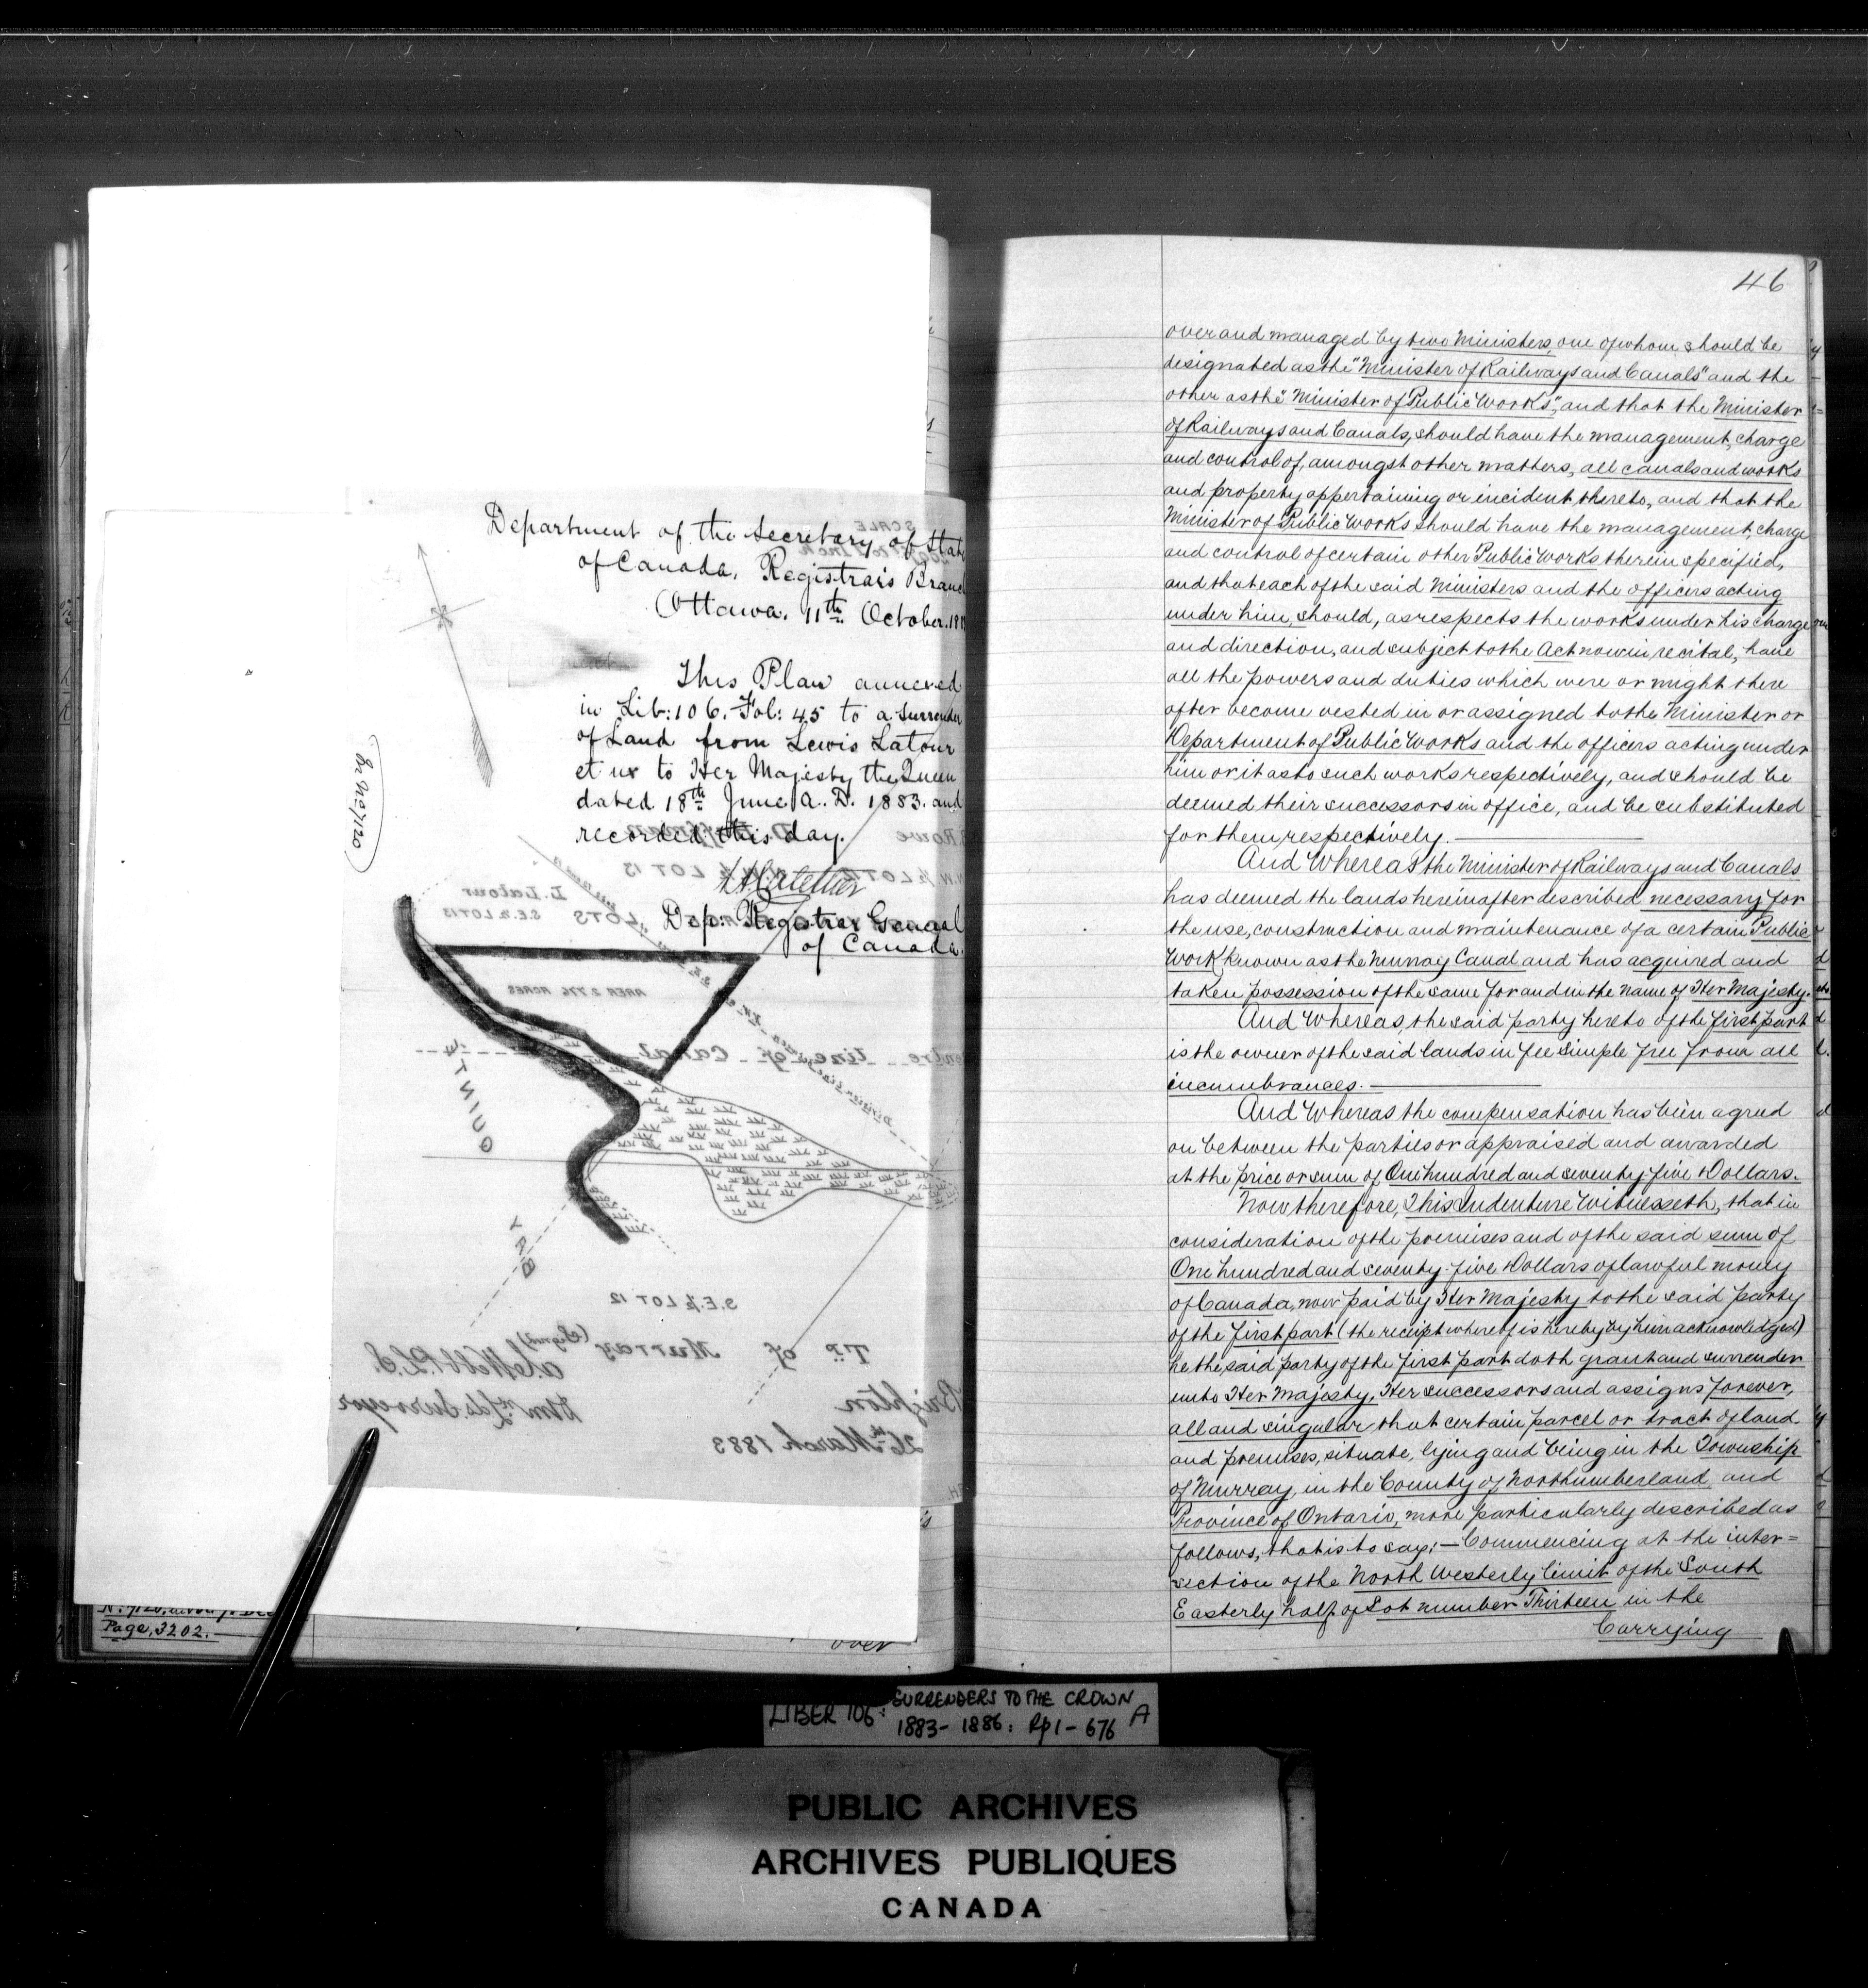 Department of the Secretary of State
of Canada, Registrar's Branch
Ottawa. 11th October. 188
This Plan annexed
in Lib: 106. Fol: 45 to a surrender
of Land from Lewis Latour
et ux to Her Majesty the Queen
dated 18th June A.. D. 1883. and
recorded this day.
Dep. Registrar General
of Canada.
Dr No 7120
SCALE
Rowe
N.W. ½ LOT
LOT 13
L. Latour
S.E. ½ LOT 13
LOTS
AREA 2.776 ACRES
Centre line of Canal
Division line
QUINTE
BAY
S.E. ½ LOT 12
Tp. of Murray
(Signed)
Brighton
26th March 1883
Dom. Lds Surveyor
Page, 3202.
over
46
over and managed by two Ministers, one of whom should be
designated as the "Minister of Railways and Canals" and the
other as the "Minister of Public Works", and that the Minister
of Railways and Canals, should have the management, charge
and control of, amongst other matters, all canals and works
and property appertaining or incident thereto, and that the
Minister of Public Works should have the management, charge
and control of certain other Public Works therein specified,
and that each of the said Ministers and the officers acting
under him, should, as respects the works under his charge
and direction, and subject to the Act now in recital, have
all the powers and duties which were or might there
after become vested in or assigned to the Minister or
Department of Public Works and the officers acting under
him or it as to such works respectively, and should be
deemed their successors in office, and be substituted
for them respectively.
And Whereas the Minister of Railways and Canals
has deemed the lands hereinafter described necessary for
the use, construction and maintenance of a certain Public
Work known as the Murray Canal and has acquired and
taken possession of the same for and in the name of Her Majesty.
And Whereas, the said party hereto of the first part
is the owner of the said lands in fee simple free from all
incumbrances.
And Whereas the compensation has been agreed
on between the parties or appraised and awarded
at the price or sum of One hundred and seventy five Dollars.
Now therefore, This Indenture Witnesseth, that in
consideration of the premises and of the said sum of
One hundred and seventy-five Dollars of lawful money
of Canada, now paid by Her Majesty to the said party
of the first part (the receipt whereof is hereby by him acknowledged)
he the said party of the first part doth grant and surrender
unto Her Majesty, Her successors and assigns forever,
all and singular that certain parcel or tract of land
and premises, situate, lying and being in the Township
of Murray, in the County of Northumberland, and
Province of Ontario, more particularly described as
follows, that is to say:— Commencing at the inter=
section of the North Westerly limit of the South
Easterly half of Lot number Thirteen in the
Carrying
LIBER 106: SURRENDERS TO THE CROWN A
1883 - 1886: Pp 1 - 676
PUBLIC ARCHIVES
ARCHIVES PUBLIQUES
CANADA